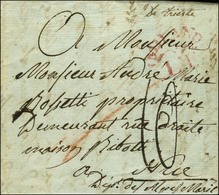 De Trieste
A Monsieur
Monsieur André Marie
Rossetti propriétaire
Demeurant rue droite
maison Ribotti
a Nice
Dép.t des Alpes Mar.